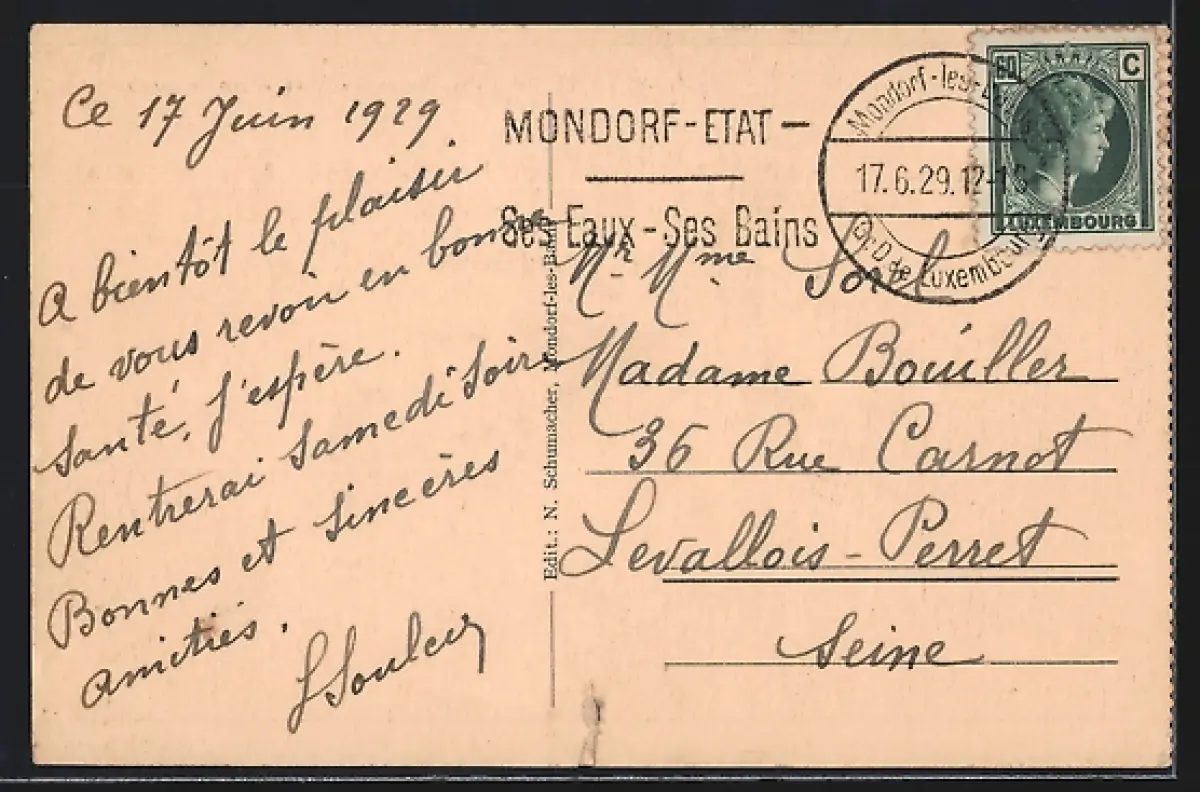 Ce 17 Juin 1929
A bientôt le plaisir
de vous revoir en bonne
santé, j'espère.
Rentrerai samedi soir
Bonnes et sincères
amitiés.
MONDORF-ETAT —
Ses Eaux - Ses Bains
Mondorf-les-
17.6.29.12-16
Gr. D. de Luxembourg
60 C
LUXEMBOURG
Edit.: N. Schumacher, Mondorf-les-Bains
Mr Mme
Madame Bouiller
36 Rue Carnot
Levallois-Perret
Seine